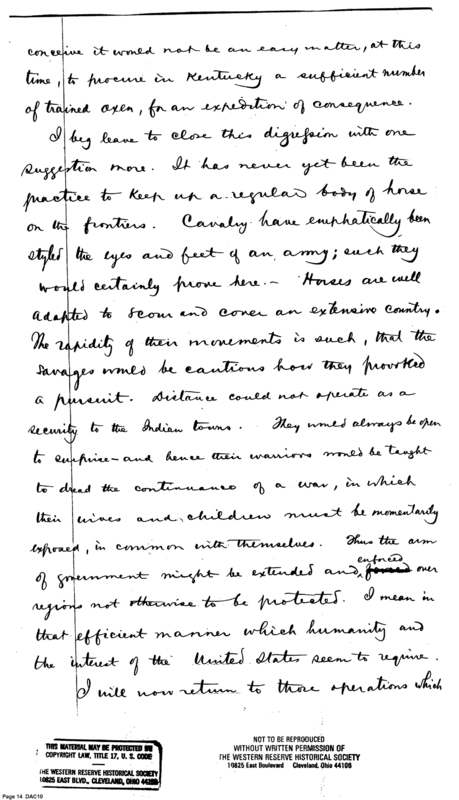 conceive it would not be an easy matter, at this
time, to procure in Kentucky a sufficient number
of trained oxen, for an expedition of consequence.
I beg leave to close this digression with one
suggestion more. It has never yet been the
practice to keep up a regular body of horse
on the frontiers. Cavalry have emphatically been
styled the eyes and feet of an army; such they
would certainly prove here. - Horses are well
adapted to scour and cover an extensive country.
The rapidity of their movements is such, that the
savages would be cautious how they provoked
a pursuit. Distance could not operate as a
security to the Indian towns. They would always be open
to surprise - and hence their warriors would be taught
to dread the continuance of a war, in which
their wives and children must be momentarily
exposed, in common with themselves. Thus the arm
enforced
of government might be extended and, forced over
regions not otherwise to be protected. I mean in
that efficient manner which humanity and
the interest of the United States seem to require.
I will now return to those operations which
THIS MATERIAL MAY BE PROTECTED BY
COPYRIGHT LAW, TITLE 17, U. S. CODE
THE WESTERN RESERVE HISTORICAL SOCIETY
10825 EAST BLVD., CLEVELAND, OHIO 44106
NOT TO BE REPRODUCED
WITHOUT WRITTEN PERMISSION OF
THE WESTERN RESERVE HISTORICAL SOCIETY
10825 East Boulevard Cleveland, Ohio 44106
Page 14 DAC10